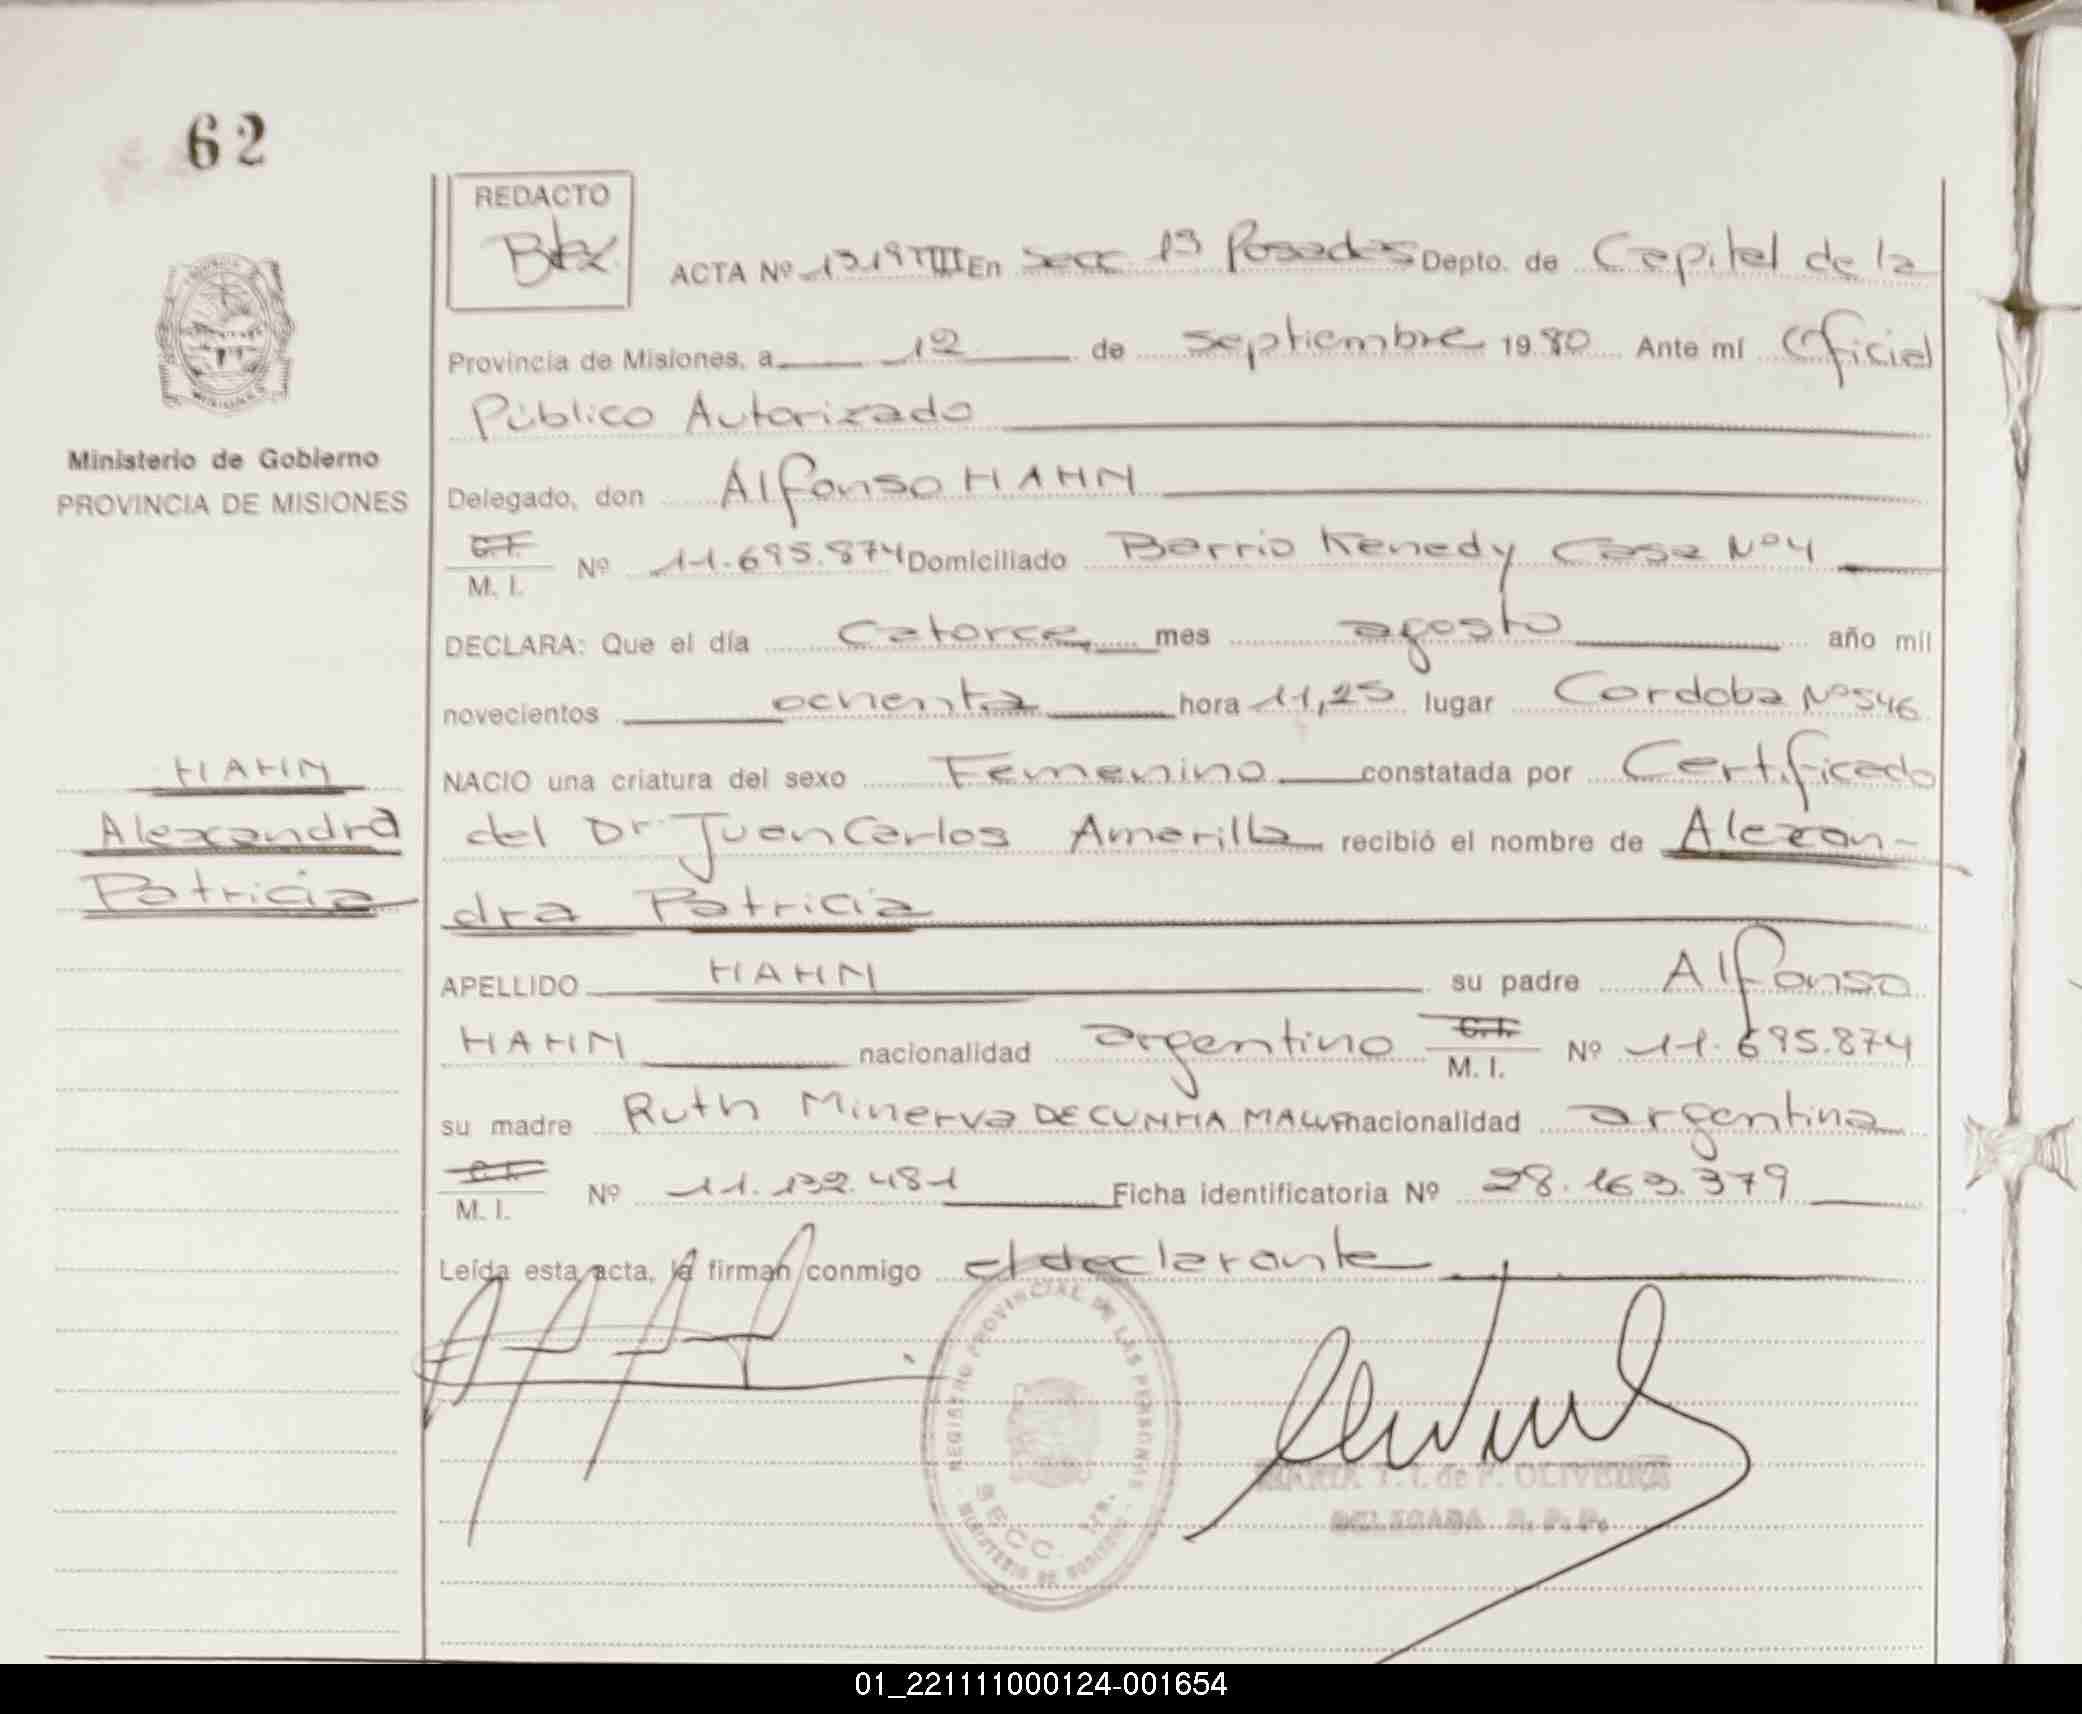 62
REDACTO
ACTA Nº 1319 TIII En Secc 1ª Posadas Depto. de Capital de la
Provincia de Misiones, a 12 de Septiembre 1980 Ante mí Oficial
Público Autorizado
Ministerio de Gobierno
PROVINCIA DE MISIONES
Delegado, don Alfonso HAHN
C.I.
M. I. Nº 11.695.874 Domiciliado Barrio Kenedy Casa Nº 4
DECLARA: Que el día Catorce mes agosto año mil
novecientos ochenta hora 11,25 lugar Cordoba Nº 546
HAHN
Alexandra
Patricia
NACIO una criatura del sexo Femenino constatada por Certificado
del Dr. Juan Carlos Amarilla recibió el nombre de Alexan-
dra Patricia
APELLIDO HAHN su padre Alfonso
HAHN nacionalidad argentino C.I.
M. I. Nº 11.695.874
su madre Ruth Minerva DE CUNHA MALUF nacionalidad argentina
C.I.
M. I. Nº 11.132.481 Ficha identificatoria Nº 28.163.379
Leída esta acta, la firman conmigo el declarante
REGISTRO PROVINCIAL DE LAS PERSONAS
SECC. 1ra.
MINISTERIO DE GOBIERNO
MARIA T. I. de P. OLIVEIRA
DELEGADA R. P. P.
01_221111000124-001654